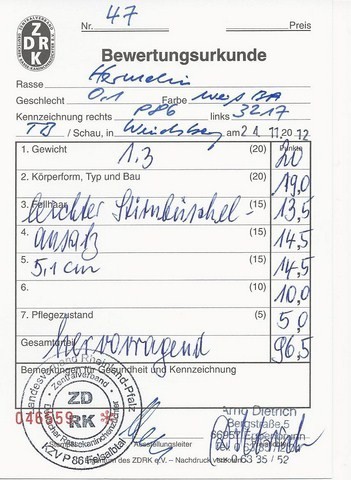 ZDRK
Nr. 47 Preis
Bewertungsurkunde
Rasse Hermelin
Geschlecht 0,1 Farbe weiß BA
Kennzeichnung rechts P86 links 3217
TB / Schau, in am 24. 11. 20 12
Punkte
1. Gewicht 1.3 (20) 20
2. Körperform, Typ und Bau (20) 19,0
3. Fellhaar leichter Stirnbüschel- (15) 13,5
4. ansatz (15) 14,5
5. 5,1 cm (15) 14,5
6. (10) 10,0
7. Pflegezustand (5) 5,0
Gesamturteil hervorragend 96,5
Bemerkungen für Gesundheit und Kennzeichnung
Landesverband Rheinland-Pfalz
Zentralverband
ZD
RK
Deutscher Rassekaninchenzüchter
KZV P 86 Felsalbtal
046959 *
Arno Dietrich
Bergstraße 5
Ausstellungsleiter
des ZDRK e.V. – Nachdruck
6 33 5 / 52